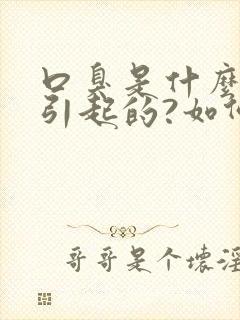 口臭是什麼
引起的?如
哥哥是个壞淫